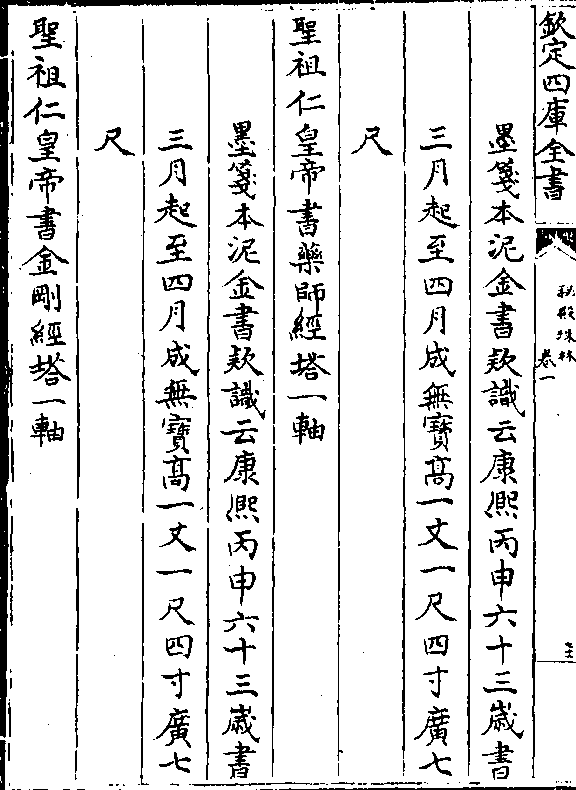 欽定四庫全書
秘殿珠林
卷一
墨箋本泥金書款識云康熙丙申六十三歲書
三月起至四月成無寶高一丈一尺四寸廣七
尺
聖祖仁皇帝書藥師經塔一軸
墨箋本泥金書款識云康熙丙申六十三歲書
三月起至四月成無寶高一丈一尺四寸廣七
尺
聖祖仁皇帝書金剛經塔一軸